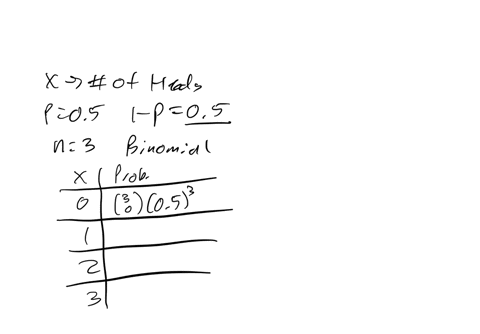 X → # of Heads
P=0.5 1-P=0.5
n=3 Binomial
X | Prob.
0 | (3 0)(0.5)^3
1
2
3